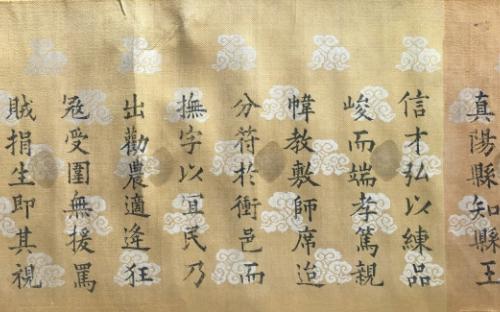 真陽縣知縣王
信才弘以練品
峻而端孝篤親
幃教敷師席迨
分符於衝邑而
撫字以宜民乃
出勸農適逢狂
冦受圍無援罵
賊捐生即其視